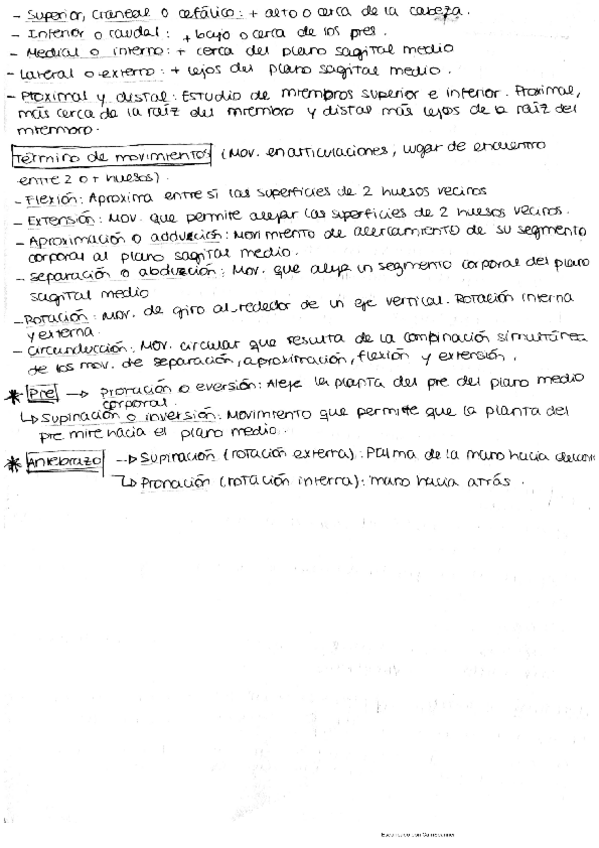 - Superior, craneal o cefálico: + alto o cerca de la cabeza.
- Inferior o caudal: + bajo o cerca de los pies.
- Medial o interno: + cerca del plano sagital medio
- Lateral o externo: + lejos del plano sagital medio.
- Proximal y distal: Estudio de miembros superior e inferior. Proximal,
más cerca de la raíz del miembro y distal más lejos de la raíz del
miembro.
Término de movimientos (Mov. en articulaciones, lugar de encuentro
entre 2 o + huesos).
- Flexión: Aproxima entre si las superficies de 2 huesos vecinos
- Extensión: Mov. que permite alejar las superficies de 2 huesos vecinos.
- Aproximación o adducción: Movimiento de acercamiento de su segmento
corporal al plano sagital medio.
- Separación o abducción: Mov. que aleja un segmento corporal del plano
sagital medio
- Rotación: Mov. de giro alrededor de un eje vertical. Rotación interna
y externa.
- Circunducción: Mov. circular que resulta de la combinación simultánea
de los mov. de separación, aproximación, flexión y extensión.
* Pie → Pronación o eversión: Aleje la planta del pie del plano medio
corporal.
↳ Supinación o inversión: Movimiento que permite que la planta del
pie mire hacia el plano medio.
* Antebrazo → Supinación (rotación externa): Palma de la mano hacia
↳ Pronación (rotación interna): mano hacia atrás.
Escaneado con CamScanner